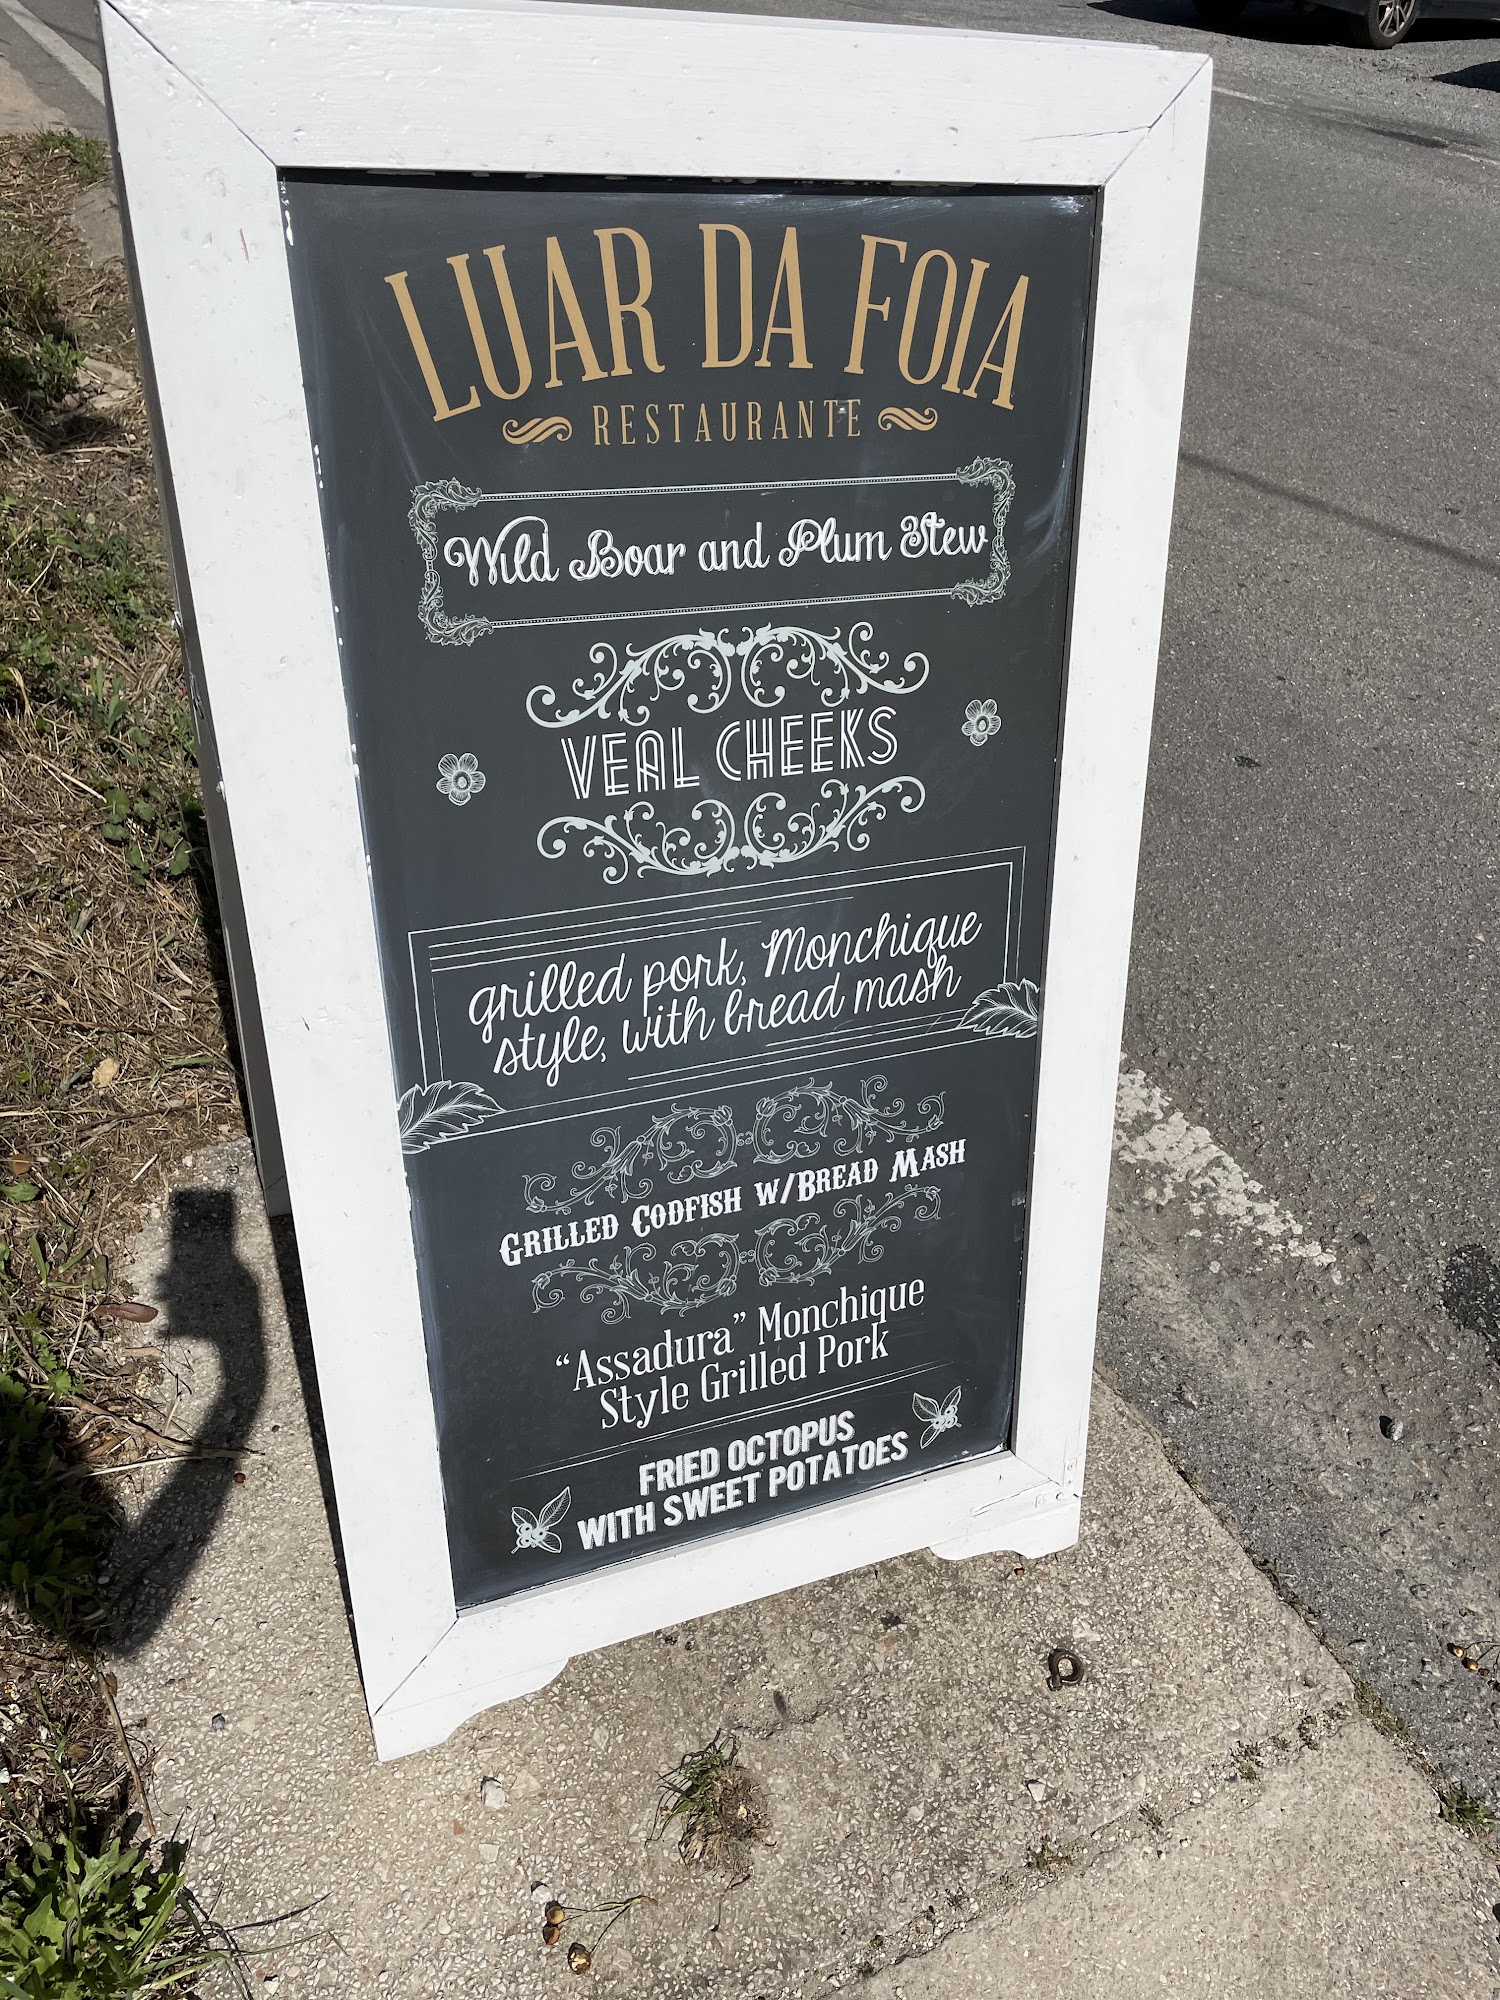 LUAR DA FOIA
RESTAURANTE
Wild Boar and Plum Stew
VEAL CHEEKS
grilled pork, Monchique
style, with bread mash
GRILLED CODFISH W/BREAD MASH
“Assadura” Monchique
Style Grilled Pork
FRIED OCTOPUS
WITH SWEET POTATOES